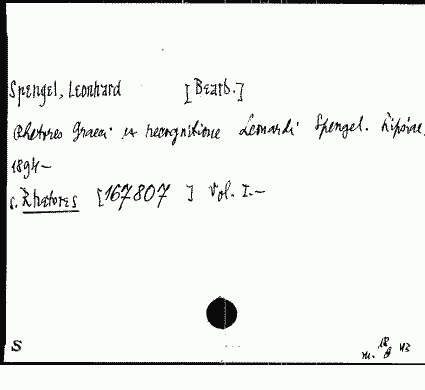 Spengel, Leonhard [Bearb.]
Rhetores Graeci ex recognitione Leonardi Spengel. Lipsiae,
1894-
s. Rhetores [167807 ] Vol. I.-
S